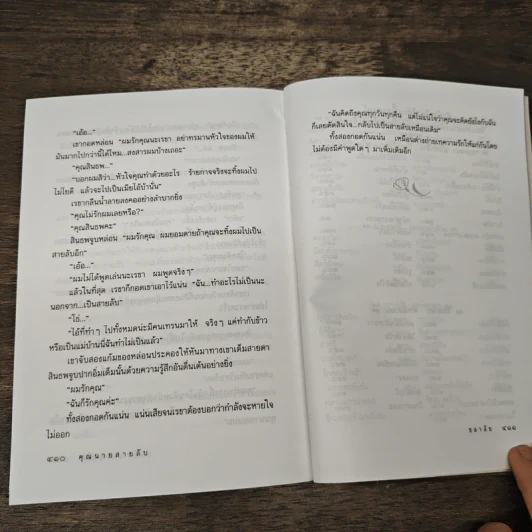 “เอ้อ...”
เขากอดหล่อน “ผมรักคุณนะเรขา อย่าทรมานหัวใจของผมให้
มันมากไปกว่านี้ได้ไหม...สงสารผมบ้างเถอะ”
“คุณสินธพ...”
“บอกผมสิว่า...หัวใจคุณทำด้วยอะไร ร้ายกาจจริงจะทิ้งผมไป
ไม่ไยดี แล้วจะไปเป็นเมียไอ้บ้านั่น”
เรขากลืนน้ำลายลงคออย่างลำบากยิ่ง
“คุณไม่รักผมเลยหรือ?”
“คุณสินธพคะ”
สินธพจูบหล่อน “ผมรักคุณ ผมยอมตายถ้าคุณจะทิ้งผมไปเป็น
สายลับอีก”
“เอ้อ...”
“ผมไม่ได้พูดเล่นนะเรขา ผมพูดจริงๆ”
แล้วในที่สุด เรขาก็กอดเขาเอาไว้แน่น “ฉัน...ทำอะไรไม่เป็นนะ
นอกจาก...เป็นสายลับ”
“โธ่...”
“ไอ้ที่ทำๆ ไปทั้งหมดน่ะมีคนเทรนมาให้ จริงๆ แค่ทำกับข้าว
หรือเป็นแม่บ้านนี่ฉันทำไม่เป็นแล้ว”
เขาจับสองแก้มของหล่อนประคองให้หันมาทางเขาเต็มสายตา
สินธพจูบปากอิ่มเต็มนั้นด้วยความรู้สึกอันตื่นเต้นอย่างยิ่ง
“ผมรักคุณ”
“ฉันก็รักคุณค่ะ”
ทั้งสองกอดกันแน่น แน่นเสียจนเรขาต้องบอกว่ากำลังจะหายใจ
ไม่ออก
๔๑๐ คุณนายสายลับ
“ฉันคิดถึงคุณทุกวันทุกคืน แต่ไม่แน่ใจว่าคุณจะคิดยังไงกับฉัน
ก็เลยตัดสินใจ...กลับไปเป็นสายลับเหมือนเดิม”
ทั้งสองกอดกันแน่น เหมือนต่างถ่ายเทความรักให้แก่กันโดย
ไม่ต้องมีคำพูดใดๆ มาเพิ่มเติมอีก
ชลาลัย ๔๑๑